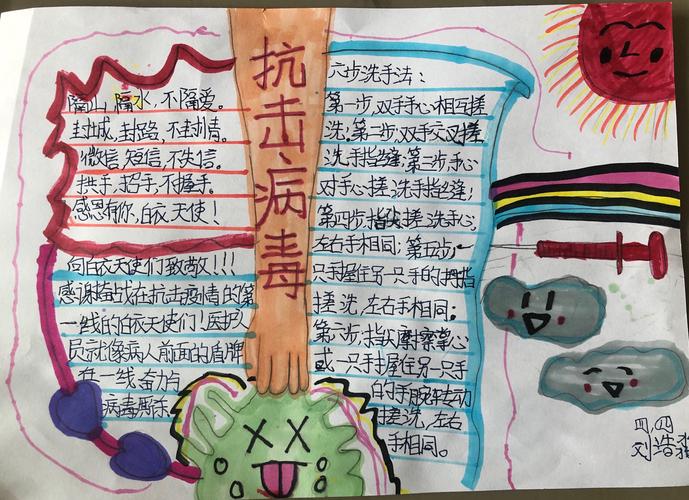 抗击病毒
隔山,隔水,不隔爱。
封城,封路,不封情。
微信,短信,不失信。
拱手,招手,不握手。
感恩有你,白衣天使!
向白衣天使们致敬!!!
感谢奋战在抗击疫情的第
一线的白衣天使们!医护人
员就像病人前面的盾牌
在一线奋力台
病毒厮杀
六步洗手法:
第一步,双手手心相互搓
洗;第二步,双手交叉搓
洗手指缝;第三步,手心
对手心搓洗手指缝;
第四步,指尖搓洗手心,
左右手相同;第五步,一
只手握住另一只手的拇指
搓洗,左右手相同。
第六步:指尖摩擦掌心
或一只手握住另一只手
的手腕转动
搓洗,左右
手相同。
四、四
刘浩